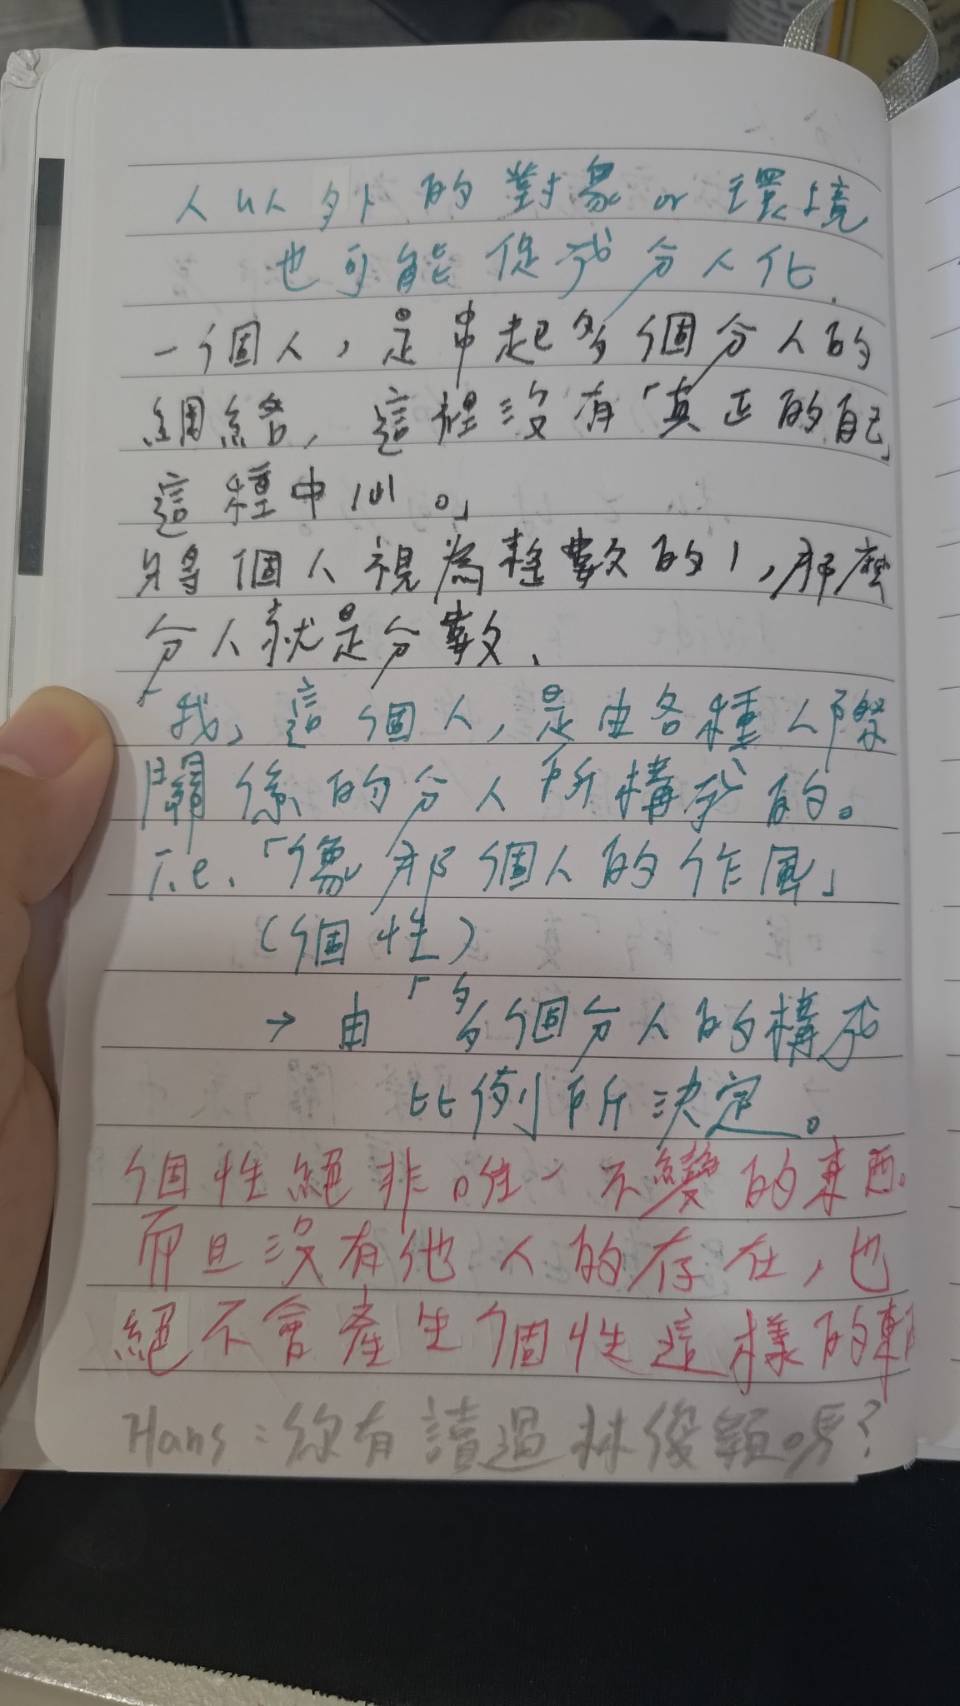 人以外的對象 or 環境
也可能促成分人化.
一個人，是串起多個分人的
網絡，這裡沒有「真正的自己」
這種中心。」
將個人視為整數的1，那麼
分人就是分數、
「我」這個人，是由各種人際
關係的分人所構成的。
i.e.「像那個人的作風」
（個性）
→ 由「多個分人的構成
比例所決定。
個性絕非唯一不變的東西。
而且沒有他人的存在，也
絕不會產生個性這樣的
Hans：你有讀過林俊頴嗎？